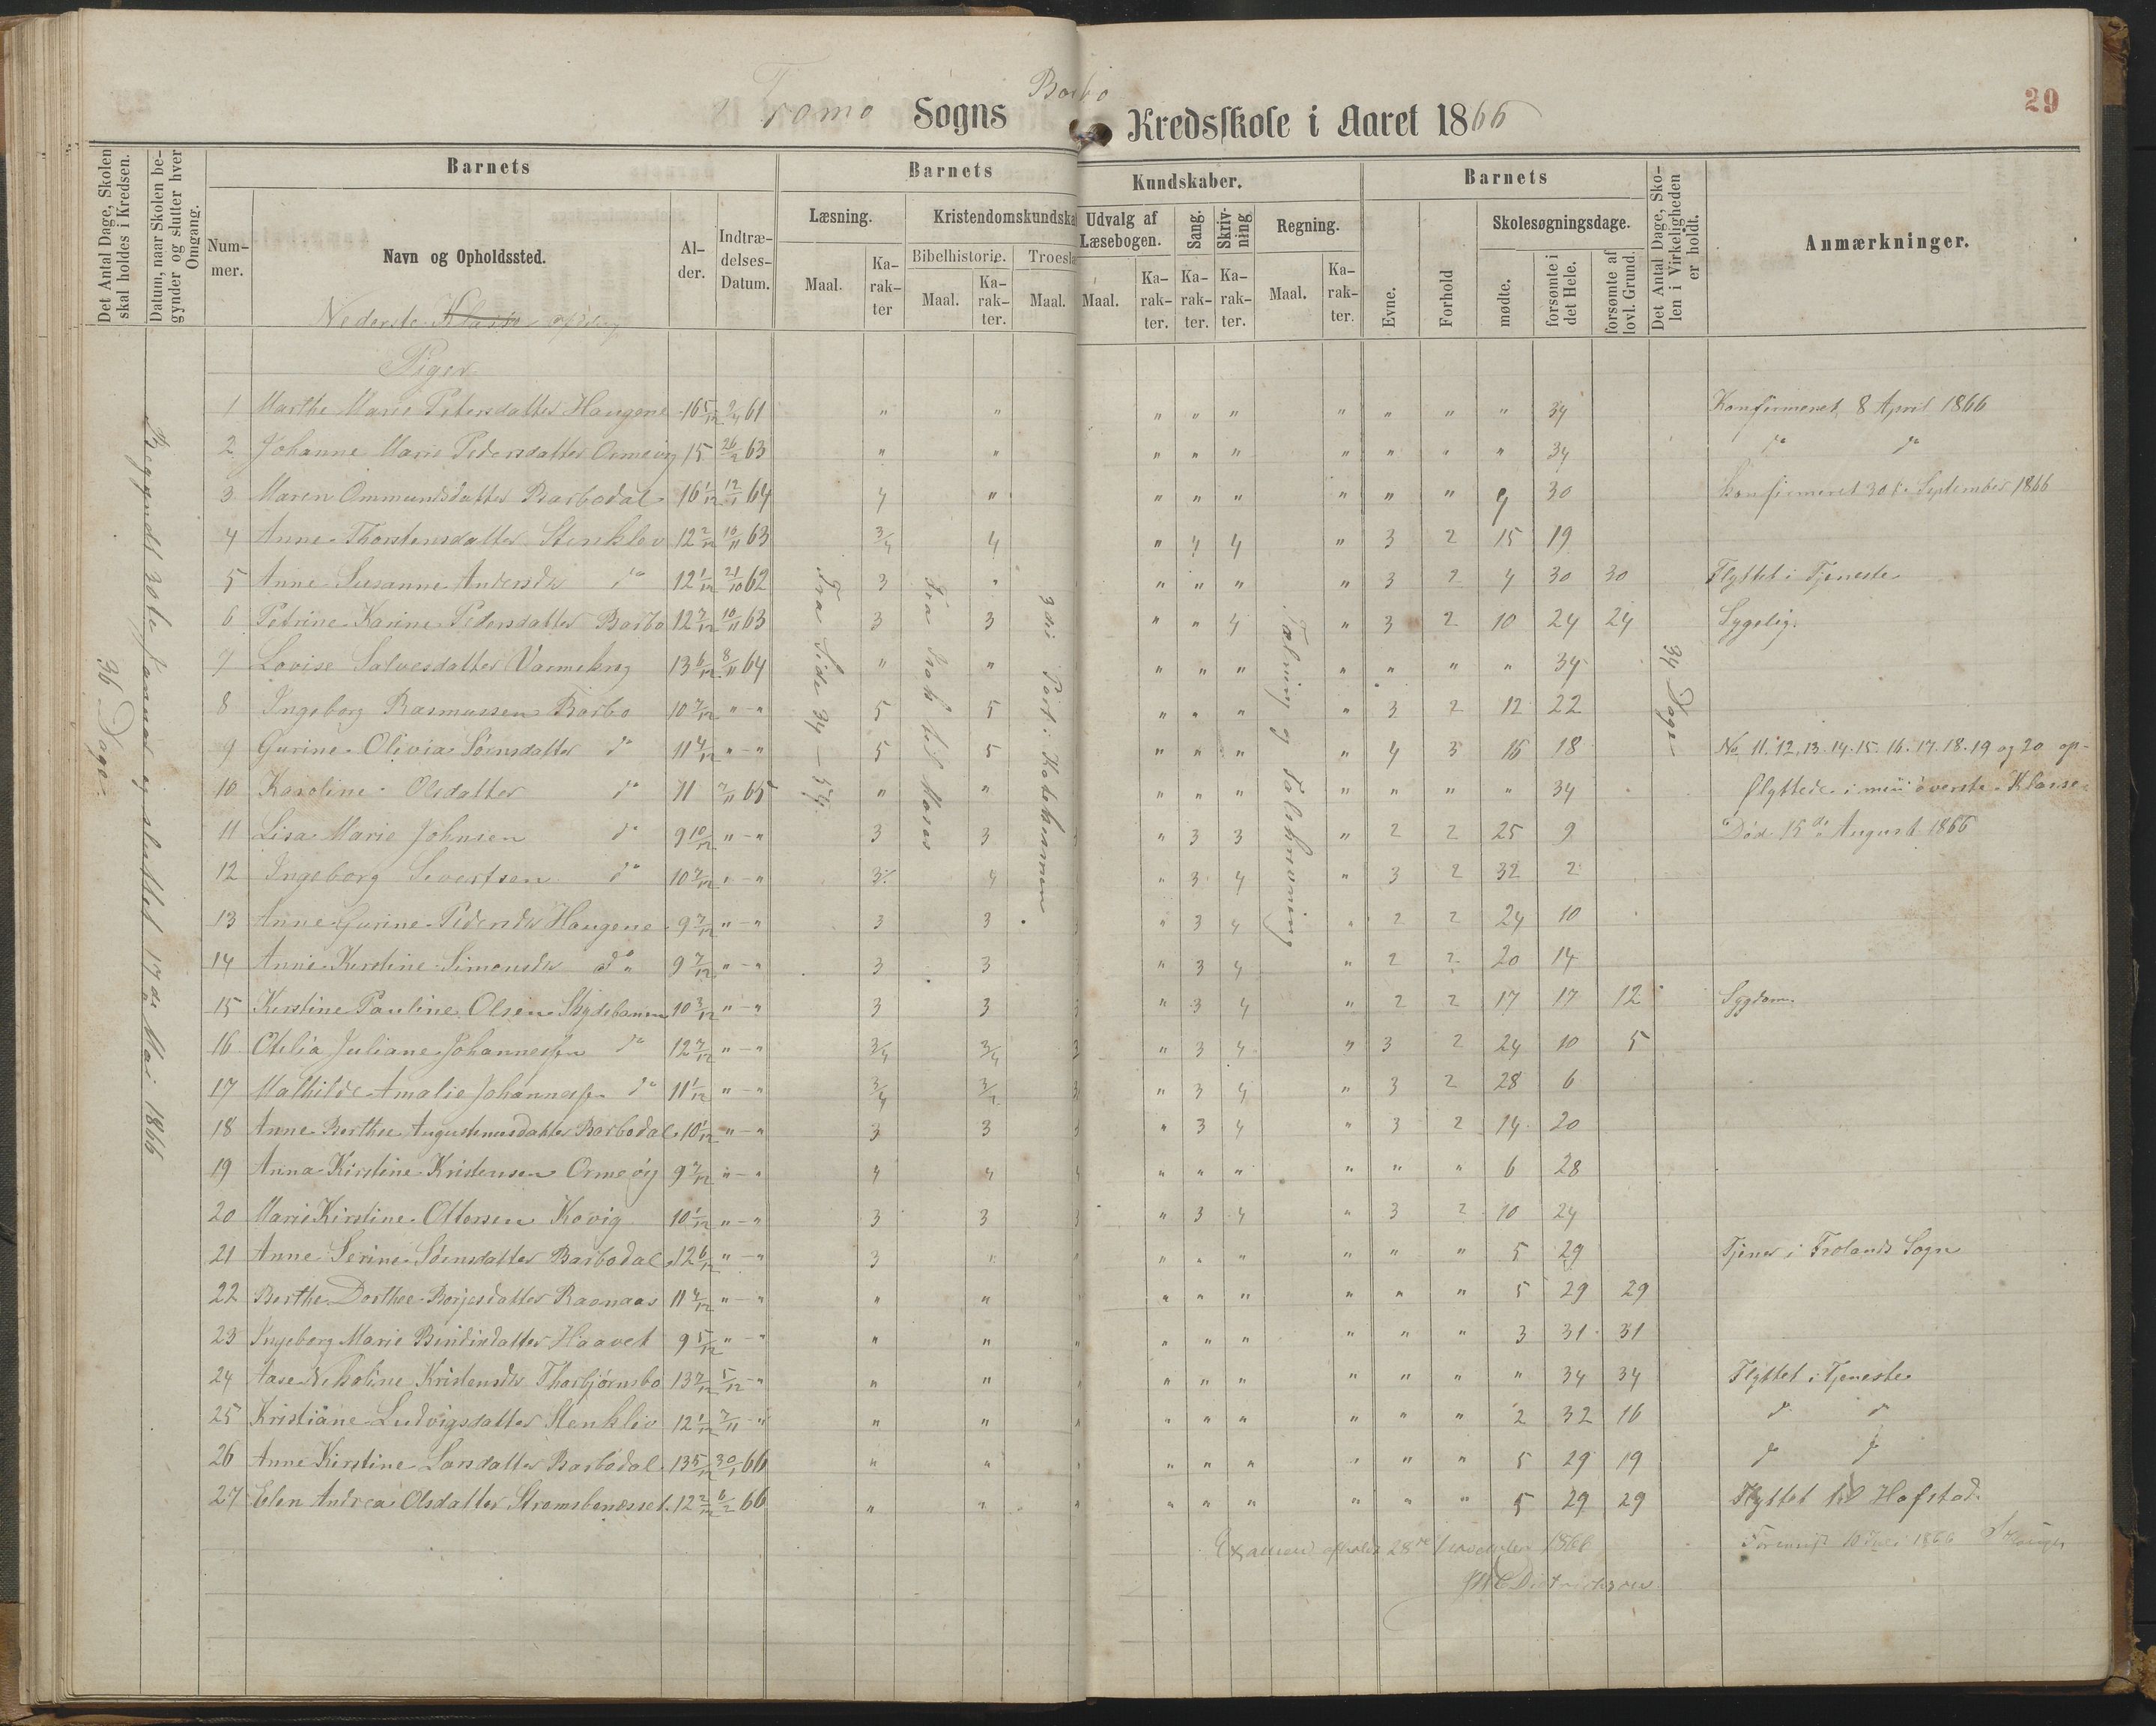 Tromø Sogns Barbo Kredsskole i Aaret 1866
29
Det Antal Dage, Skolen skal holdes i Kredsen.
Datum, naar Skolen begynder og slutter hver Omgang.
Barnets
Nummer.
Navn og Opholdssted.
Alder.
Indtrædelses-Datum.
Barnets Kundskaber.
Læsning.
Maal.
Karakter
Kristendomskundska
Bibelhistorie.
Maal.
Karakter.
Troeslæ
Maal.
Udvalg af Læsebogen.
Maal.
Karakter.
Sang.
Karakter.
Skrivning
Karakter.
Regning.
Maal.
Karakter.
Barnets
Evne.
Forhold
Skolesøgningsdage.
mødte.
forsømte i det Hele.
forsømte af lovl. Grund.
Det Antal Dage, Skolen i Virkeligheden er holdt.
Anmærkninger.
36 Dage.
Begyndt 30te Januar og sluttet 17de Mai 1866
Fra Side 34 – 54.
Fra Isak til Moses
3die Part i Katekismen
Tælning og Talskrivning
34 Dage
Nederste Klasse
Piger
1 Marthe Marie Petersdatter Haugene 16 5/12 2/4 61 " " " " " " " " " 34 Konfirmeret 8 April 1866
2 Johanne Marie Pedersdatter Ormevig 15 26/2 63 " " " " " " " " " 34 do do
3 Maren Ommundsdatter Barbodal 16 1/12 12/1 64 4 " " " " " " " 4 30 Konfirmeret 30te September 1866
4 Anne Thorstensdatter Stenklev 12 2/12 10/11 63 3/4 4 " 4 4 " 3 2 15 19
5 Anne Susanne Andersdtr do 12 1/12 21/10 62 3 " " " " " 3 2 4 30 30 Flyttet i Tjeneste
6 Petrine Karine Pedersdatter Barbo 12 7/12 10/11 63 3 3 " " 4 " 3 2 10 24 24 Sygelig.
7 Lovise Salvesdatter Varmekrog 13 6/12 8/11 64 " " " " " " " " " 34
8 Ingeborg Rasmussen Barbo 10 7/12 " - " 5 5 " " " " 3 2 12 22
9 Gurine Olivia Sørensdatter do 11 4/12 " - " 5 5 " " " " 4 3 16 18 No 11. 12. 13. 14. 15. 16. 17. 18. 19 og 20 op-
10 Karoline Olsdatter do 11 7/11 65 " " " " " " " " " 34 flyttede i øverste Klasse
11 Lisa Marie Johnsen do 9 10/12 " - " 3 3 3 " 3 3 " 2 2 25 9 Død 15de August 1866
12 Ingeborg Sivertsen do 10 7/12 " - " 3% 4 " 3 4 " 3 2 32 2
13 Anne Gurine Pedersdtr Haugene 9 7/12 " - " 3 3 3 " 3 4 " 2 2 24 10
14 Anne Kirstine Simonsdtr do 9 7/12 " - " 3 3 " 3 4 " 2 2 20 14
15 Kirstine Pauline Olsen Skydebanen 10 3/12 " - " 3 3 3 " 3 4 " 2 2 17 17 12 Sygdom.
16 Otelia Juliane Johannessen do 12 7/12 " - " 3/4 3/4 3 " 3 4 " 3 2 24 10 5
17 Mathilde Amalie Johannessen do 11 1/12 " - " 3/4 3/4 3 " 3 4 " 3 2 28 6
18 Anne Berthe Augustinusdatter Barbodal 10 1/12 " - " 3 3 3 " 3 4 " 3 2 14 20
19 Anna Kirstine Kristensen Ormevig 9 7/12 " - " 4 4 4 " " " " " " 6 28
20 Marie Kirstine Ottersen Kovig 10 1/12 " - " 3 3 3 " 3 4 " 3 2 10 24
21 Anne Serine Sørensdatter Barbodal 12 6/12 " - " 3 " " " " " " " " 5 29 Tjener i Frolands Sogn
22 Berthe Dorthee Børjesdatter Raanaas 11 4/12 " - " " " " " " " " " 5 29 29
23 Ingeborg Marie Bendixdatter Haavet 9 5/12 " - " " " " " " " " " " 3 31 31
24 Aase Nikoline Kristensdtr Thorbjørnsbo 13 7/12 5/12 - " " " " " " " " " " " 34 34 Flyttet i Tjeneste
25 Kristiane Ludvigsdatter Stenkliv 12 1/12 7/11 - " " " " " " " " " " 2 32 16 do do
26 Anne Kirstine Larsdatter Barbodal 13 5/12 30/1 66 " " " " " " " " " 5 29 19 do do
27 Elen Andrea Olsdatter Strømsbunesset 12 2/12 6/2 66 " " " " " " " " " 5 29 29 Flyttet til Hofstad.
Examen afholdt 28de November 1866
Forevist 10 Juli 1866